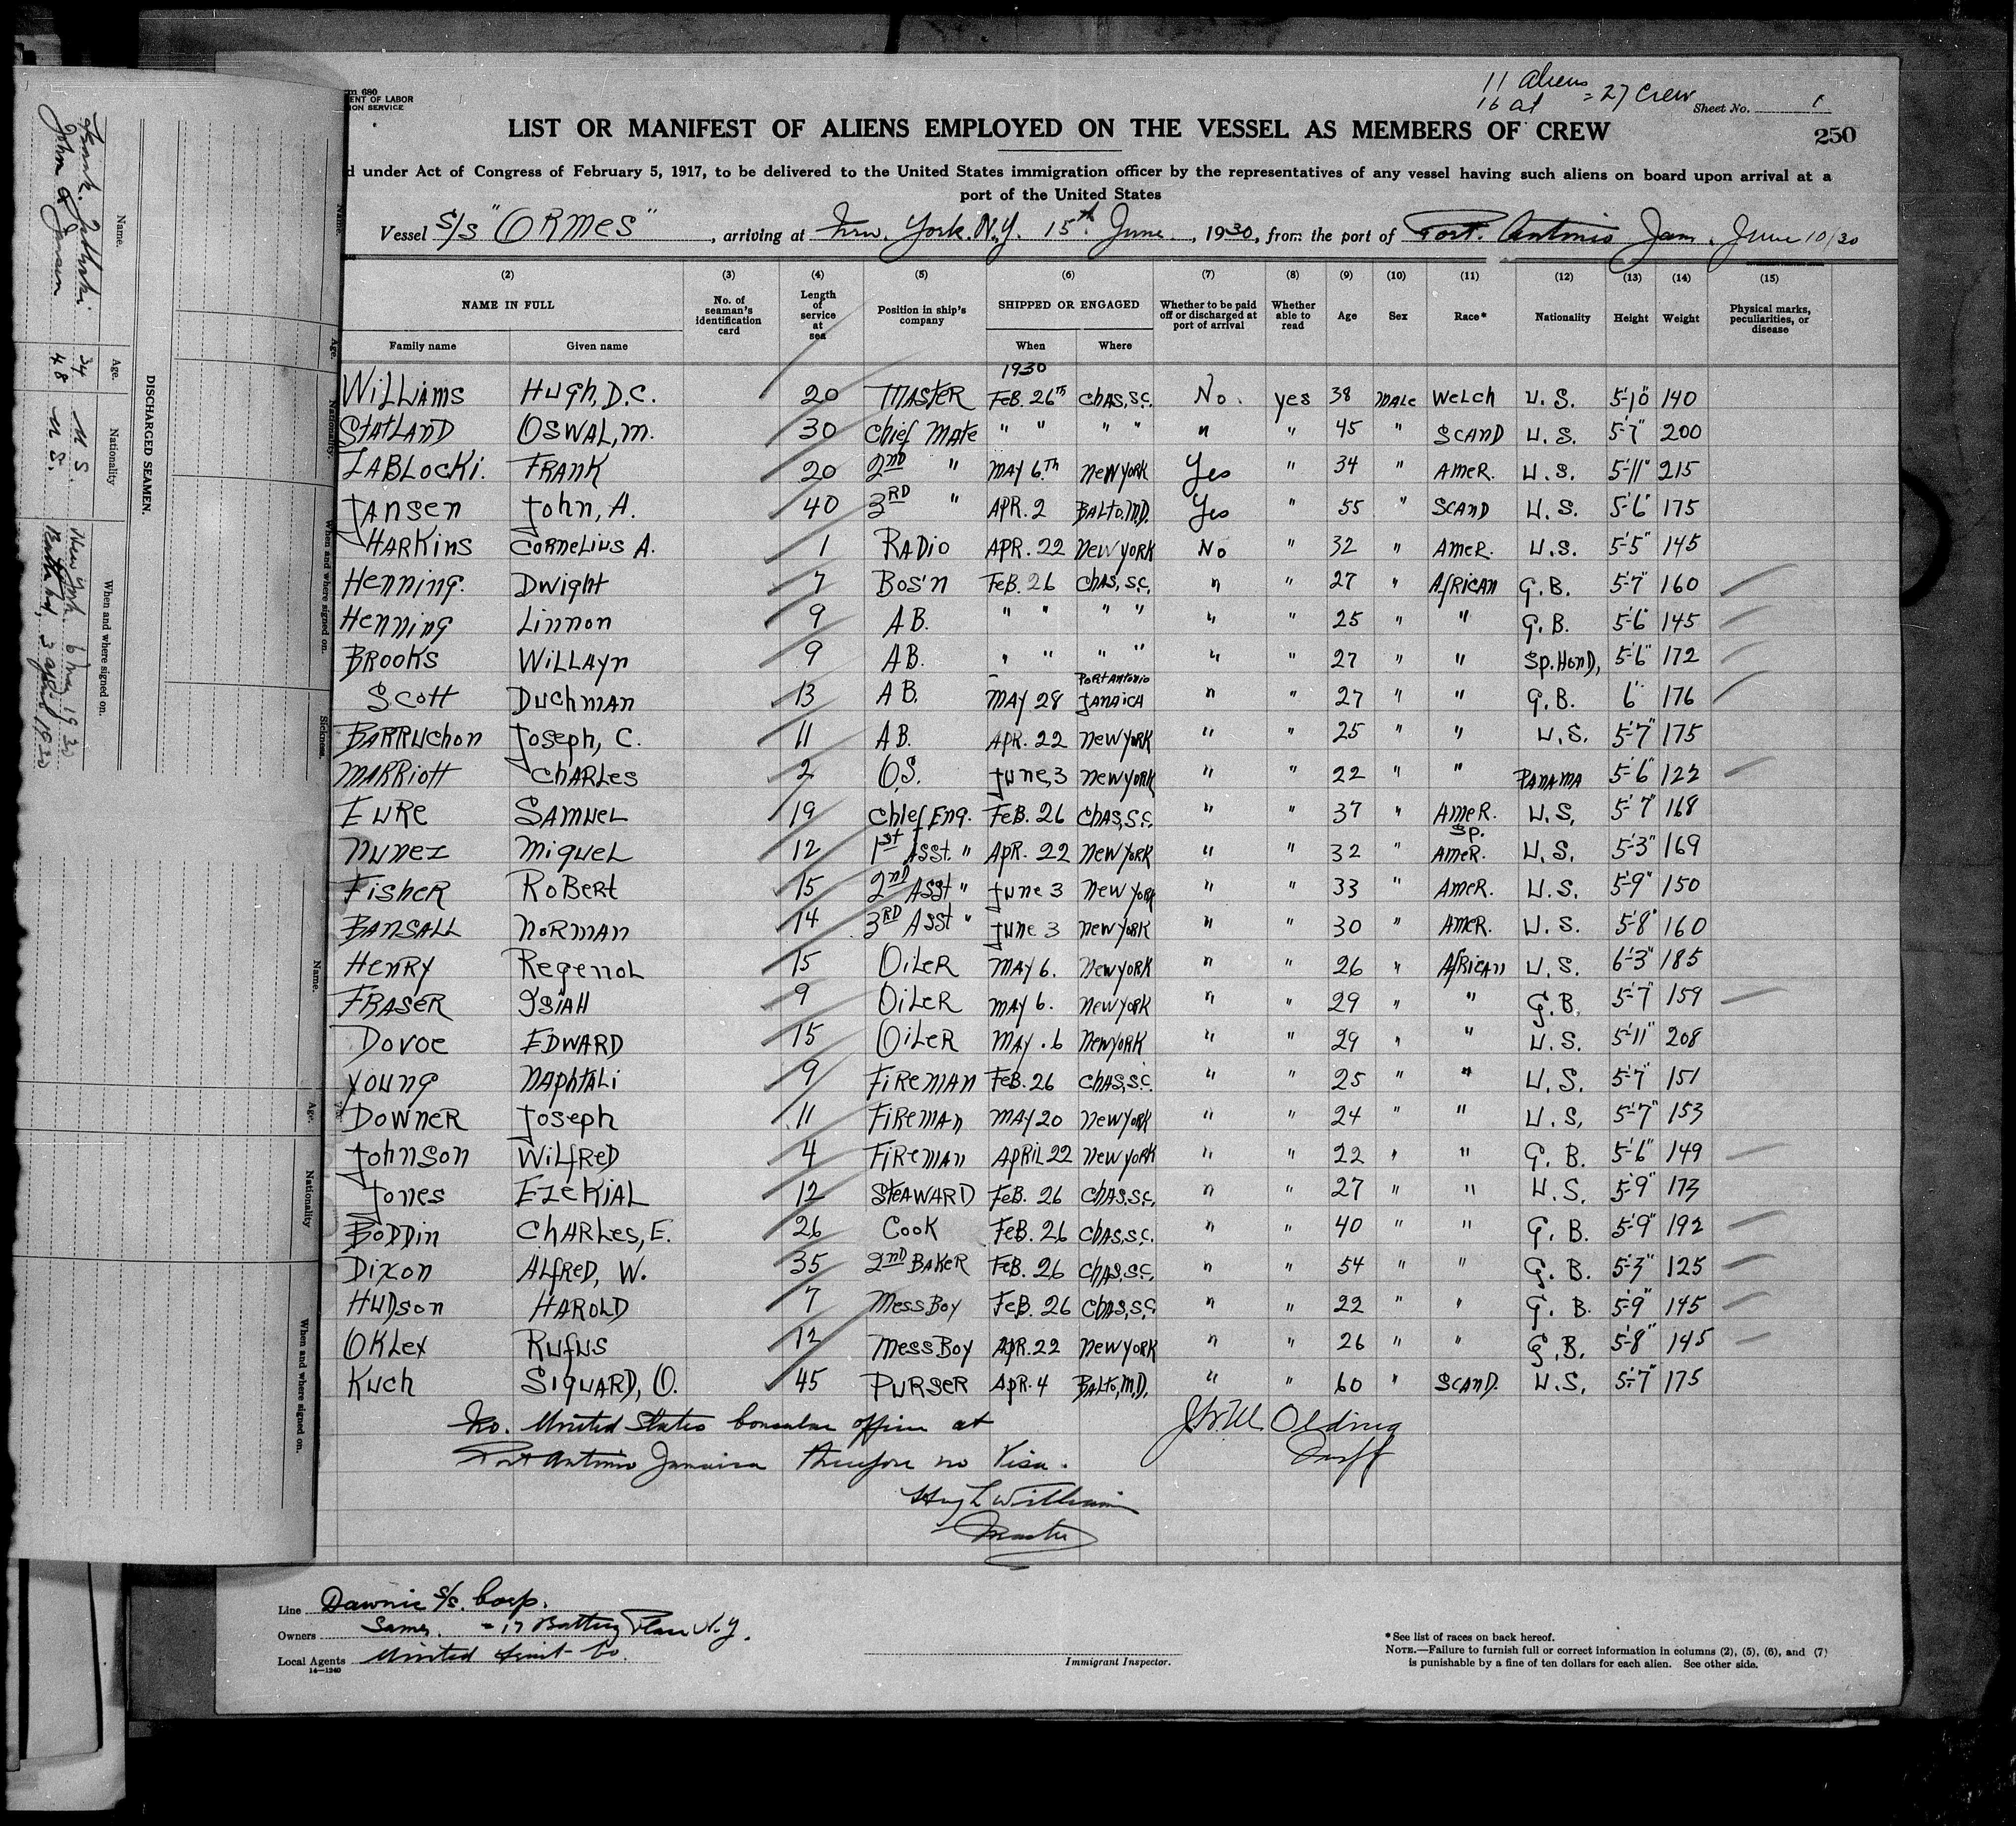 11 aliens
16 at = 27 Crew
Sheet No. 1
m 680
ENT OF LABOR
ION SERVICE
LIST OR MANIFEST OF ALIENS EMPLOYED ON THE VESSEL AS MEMBERS OF CREW
250
d under Act of Congress of February 5, 1917, to be delivered to the United States immigration officer by the representatives of any vessel having such aliens on board upon arrival at a
port of the United States
Vessel S/S "ORMES", arriving at New York. N.Y. 15th June, 1930, from the port of Port. Antonio Jam. June 10/30
(2) (3) (4) (5) (6) (7) (8) (9) (10) (11) (12) (13) (14) (15)
NAME IN FULL No. of seaman's identification card Length of service at sea Position in ship's company SHIPPED OR ENGAGED Whether to be paid off or discharged at port of arrival Whether able to read Age Sex Race* Nationality Height Weight Physical marks, peculiarities, or disease
Family name Given name When Where
1930
WILLIAMS HUGH, D.C. 20 MASTER FEB. 26th CHAS, S.C. No. yes 38 MALE WELCH U.S. 5-10" 140
STATLAND OSWAL, M. 30 Chief MATE " " " " " " 45 " SCAND U.S. 5'7" 200
ZABLOCKI. FRANK 20 2ND " MAY 6TH NEW YORK Yes " 34 " AMER. U.S. 5'11" 215
JANSEN John, A. 40 3RD " APR. 2 BALTO. M.D. Yes " 55 " SCAND U.S. 5'6" 175
HARKINS CORNELIUS A. 1 RADIO APR. 22 NEW YORK No " 32 " AMER. U.S. 5'5" 145
Henning. Dwight 7 Bos'n FEB. 26 CHAS, S.C. " " 27 " AfRICAN G.B. 5-7" 160
Henning Linnon 9 AB. " " " " " " 25 " " G.B. 5'6" 145
BROOKS WILLAyn 9 AB. " " " " " " 27 " " Sp. HonD, 5'6" 172
Scott DUChMAN 13 AB. MAY 28 Port Antonio JAMAICA " " 27 " " G.B. 6' 176
BARRUChon Joseph, C. 11 AB. APR. 22 NEW YORK " " 25 " " U.S. 5'-7" 175
MARRIOTT CHARLES 2 O.S. June, 3 NEW YORK " " 22 " " PANAMA 5'6" 122
EURE SAMUEL 19 Chief Eng. FEB. 26 CHAS, S.C. " " 37 " AMER. U.S. 5'7" 168
NUNEZ MIQUEL 12 1st ASST. " APR. 22 NEW YORK " " 32 " Sp. AMER. U.S. 5'3" 169
FISHER ROBERT 15 2ND ASST " June 3 NEW YORK " " 33 " AMER. U.S. 5'9" 150
BANSALL NORMAN 14 3RD ASST " June 3 NEW YORK " " 30 " AMER. U.S. 5'8" 160
HENRY RegenoL 15 OILER MAY 6. NEW YORK " " 26 " AfRICAN U.S. 6'-3" 185
FRASER ISIAH 9 OILER MAY 6. NEW YORK " " 29 " " G.B. 5'-7" 159
Dovoe EDWARD 15 OILER MAY. 6 NEW YORK " " 29 " " U.S. 5'11" 208
YOUNG NAPHTALI 9 FIREMAN FEB. 26 CHAS, S.C. " " 25 " " U.S. 5'7" 151
DOWNER Joseph 11 FIREMAN MAY 20 NEW YORK " " 24 " " U.S, 5'-7" 153
Johnson WILfRED 4 FIREMAN APRIL 22 NEW YORK " " 22 " " G.B. 5'6" 149
Jones EZEKIAL 12 STEAWARD FEB. 26 CHAS, S.C, " " 27 " " U.S. 5'9" 173
BODDIN CHARLES, E. 26 COOK FEB. 26 CHAS, S.C. " " 40 " " G.B. 5'-9" 192
DIXON ALfRED, W. 35 2ND BAKER FEB. 26 CHAS, S.C, " " 54 " " G.B. 5'-3" 125
HUDSON HAROLD 7 MessBoy FEB. 26 CHAS, S.C " " 22 " " G.B. 5'9" 145
OKLEX RUfUS 12 MessBoy APR. 22 NEW YORK " " 26 " " G.B. 5'-8" 145
KUCH SIQUARD, O. 45 PURSER APR. 4 BALTO, M.D. " " 60 " SCAND. U.S. 5'-7" 175
No. United States Consular office at
Port Antonio Jamaica therefore no Visa.
Hugh Williams
Master
Line Dawnic S/S. Corp.
Owners Same. = 17 Battery Place N.Y.
Local Agents United Fruit Co.
14-1240
Immigrant Inspector.
*See list of races on back hereof.
NOTE.—Failure to furnish full or correct information in columns (2), (5), (6), and (7)
is punishable by a fine of ten dollars for each alien. See other side.
DISCHARGED SEAMEN.
Name. Age. Nationality When and where signed on.
Frank. Zablocki 34 U.S. New York 6 May 1930
John A Jansen 48 U.S. 3 April 1930
Name. Age. Nationality. When and where signed on. Sickness.
Name. Age. Nationality When and where signed on.